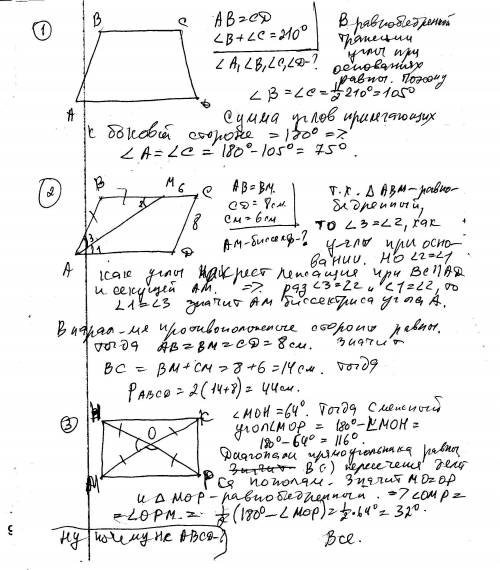 1
B C
A D
AB=CD
∠B+∠C=210°
∠A, ∠B, ∠C, ∠D-?
В равнобедренной
трапеции
углы при
основаниях
равны. Поэтому
∠B=∠C=1/2 210°=105°
Сумма углов прилегающих
к боковой стороне = 180° =>
∠A=∠C=180°-105°=75°.
2
B M 6 C
8
A D
3 1 2
AB=BM.
CD=8см
CM=6см
AM-биссект-?
Т.к. △ABM-равно-
бедренный,
то ∠3=∠2, как
углы при осно-
вании. Но ∠2=∠1
как углы накрест лежащие при BC||AD
и секущей AM. => раз ∠3=∠2 и ∠1=∠2, то
∠1=∠3 значит AM биссектриса угла A.
В парал-ме противоположные стороны равны.
тогда AB=BM=CD=8см. Значит
BC=BM+CM=8+6=14см. Тогда
PABCD=2(14+8)=44см.
3
H K
O
M P
∠MOH=64°. Тогда смежный
угол ∠MOP=180°-∠MOH=
180°-64°=116°.
Диагонали прямоугольника равны
и пересечения делят
ся пополам. Значит MO=OP
и △MOP-равнобедренный. => ∠OMP=
=∠OPM=1/2(180°-∠MOP)=1/2·64°=32°.
Ну почему не ABCD-?
Все.